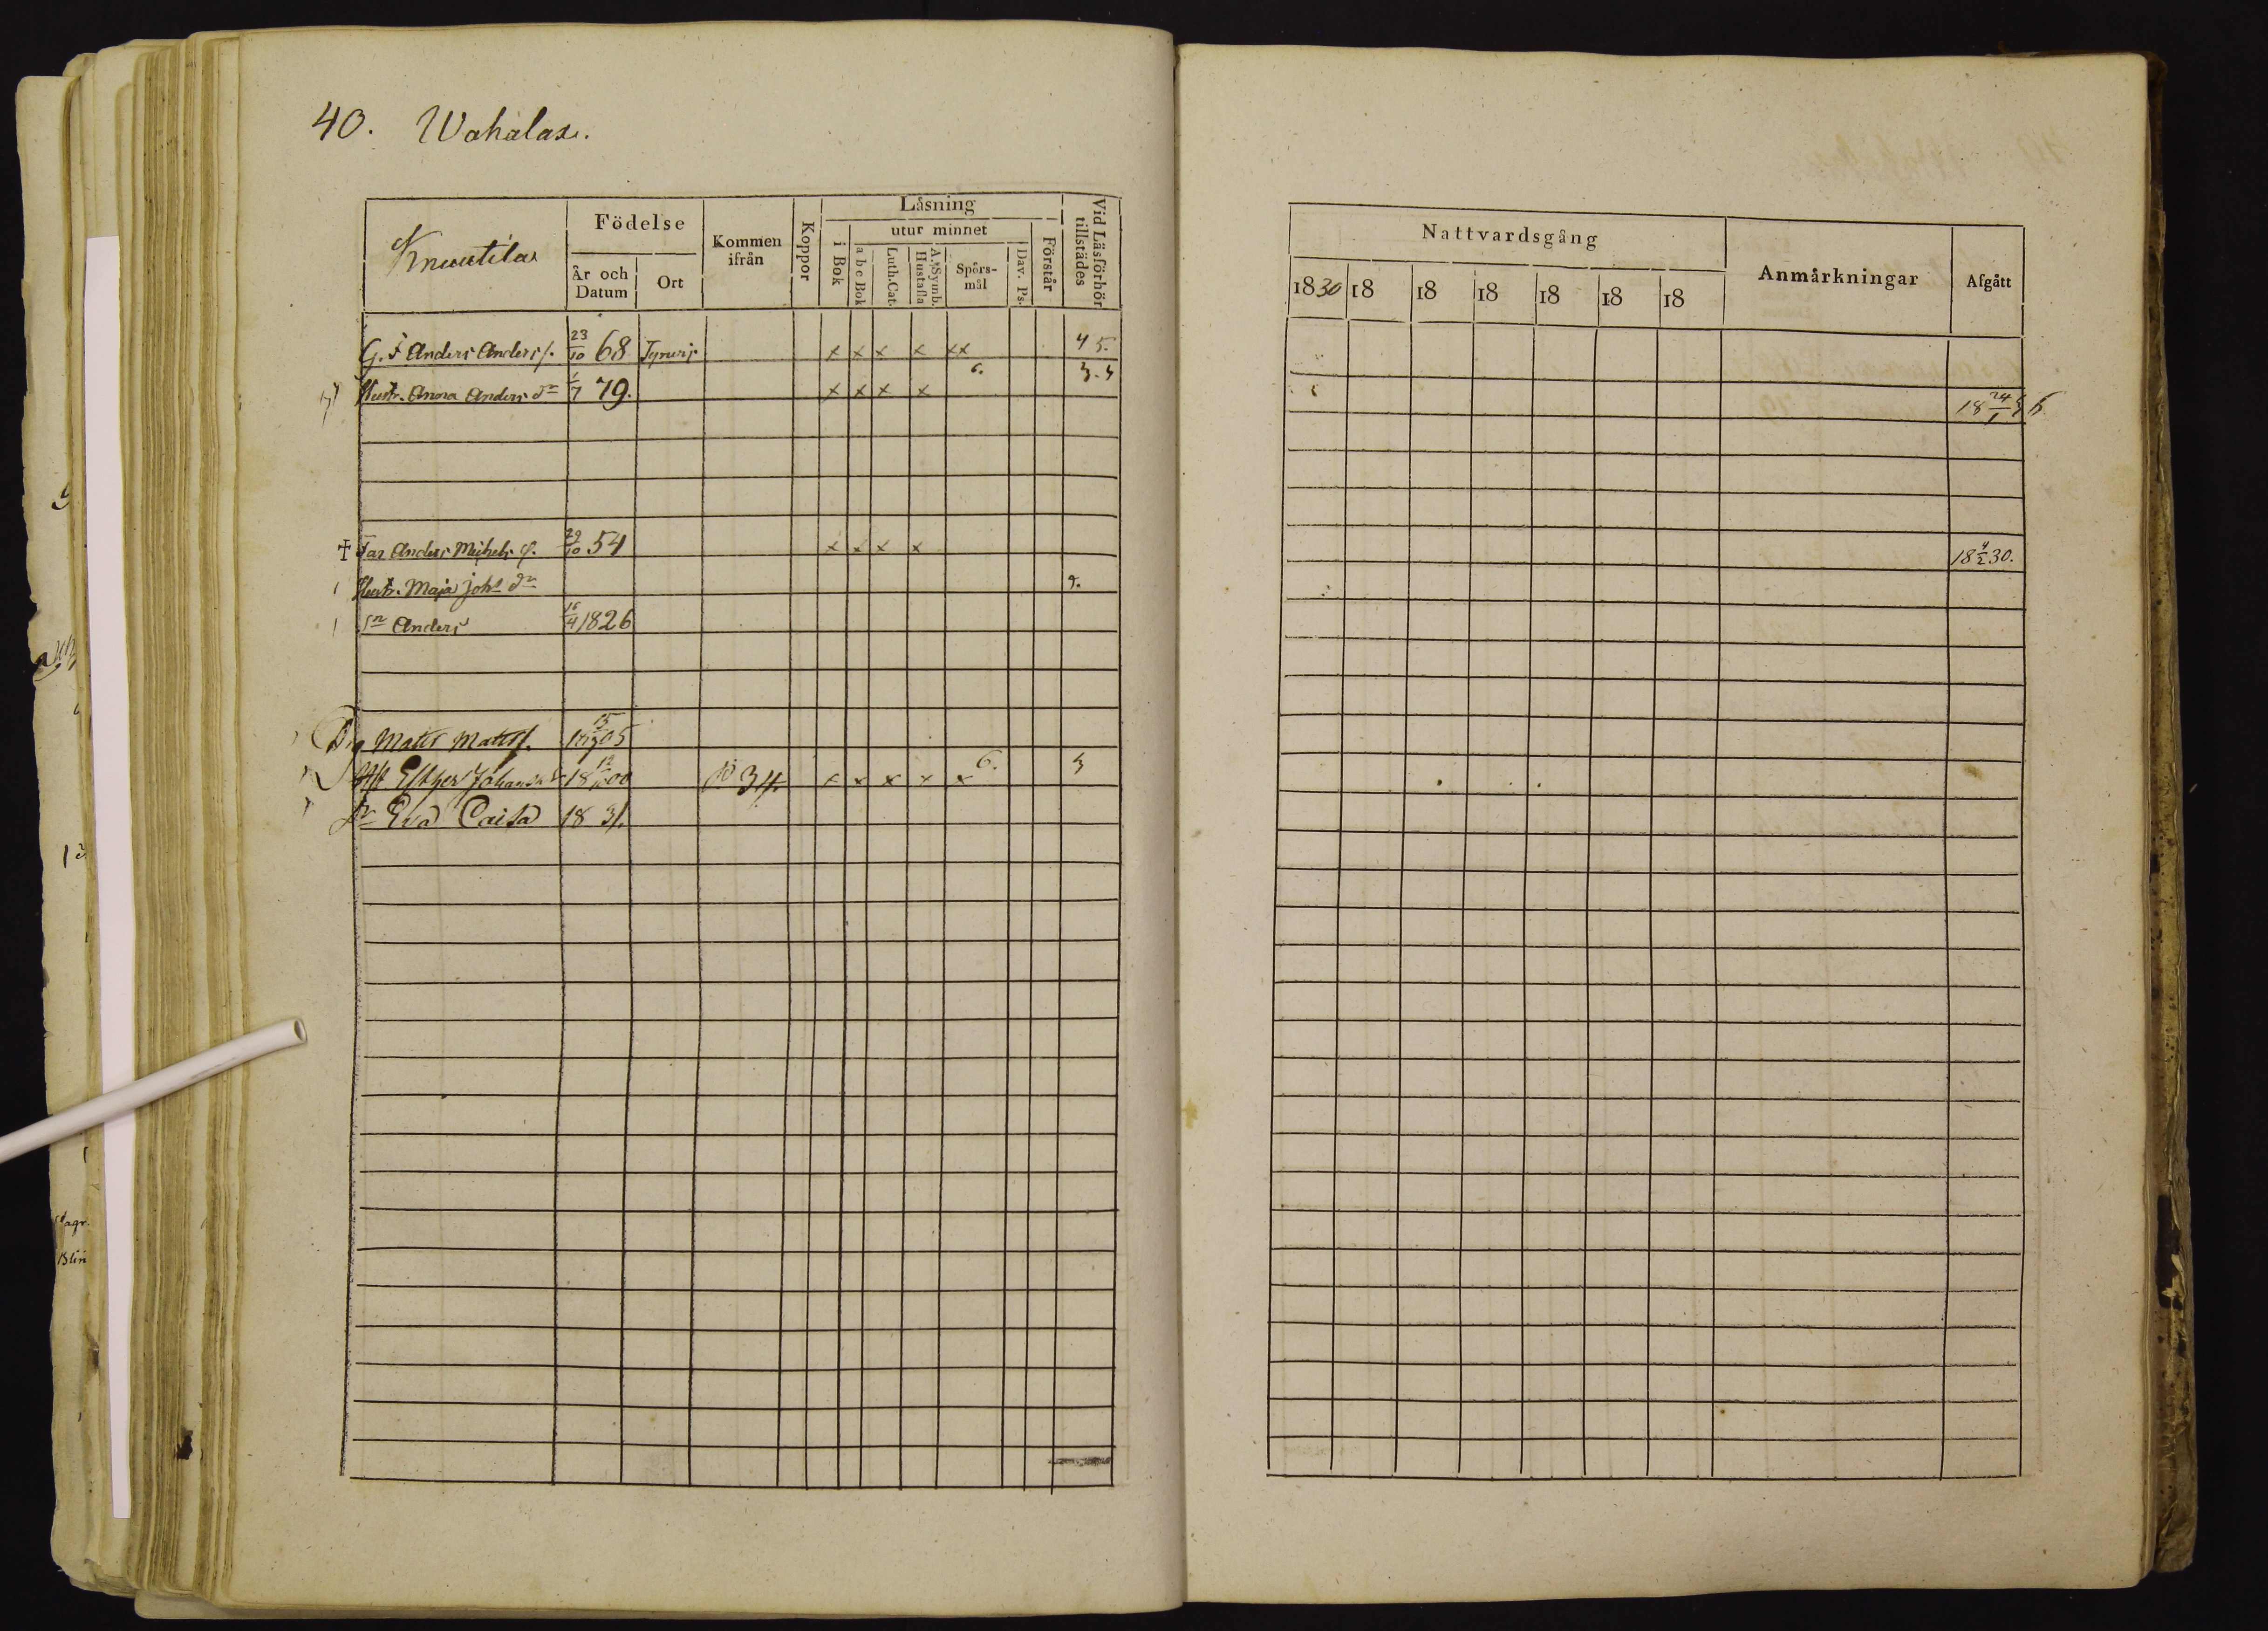 40. Wahalax.
Knuutila
Födelse
År och Datum
Ort
Kommen ifrån
Koppor
Läsning
i Bok
utur minnet
a b c Bok
Luth. Cat.
A. Symb. Hustafla
Spörsmål
Dav. Ps.
Förstår
Vid Läsförhör tillstädes
G. F Anders Anders s. 23/10 68 x x x x xx 4 5.
Hustr. Anna Anders dr 1/7 79. x x x x 6. 3.4
Far Anders Michels s. 29/10 54 x x x x
Hustr. Maja Johs dr 9.
sn Anders 16/4 1826
Matts Matts s. 05
Hst Esther Johans dr 18 00 34. x x x x x 6. 3
dr Eva Caisa 18 31.
Nattvardsgång
1830 18 18 18 18 18 18
Anmärkningar
Afgått
18 24/1
18 4/2 30.
dagr.
Blin